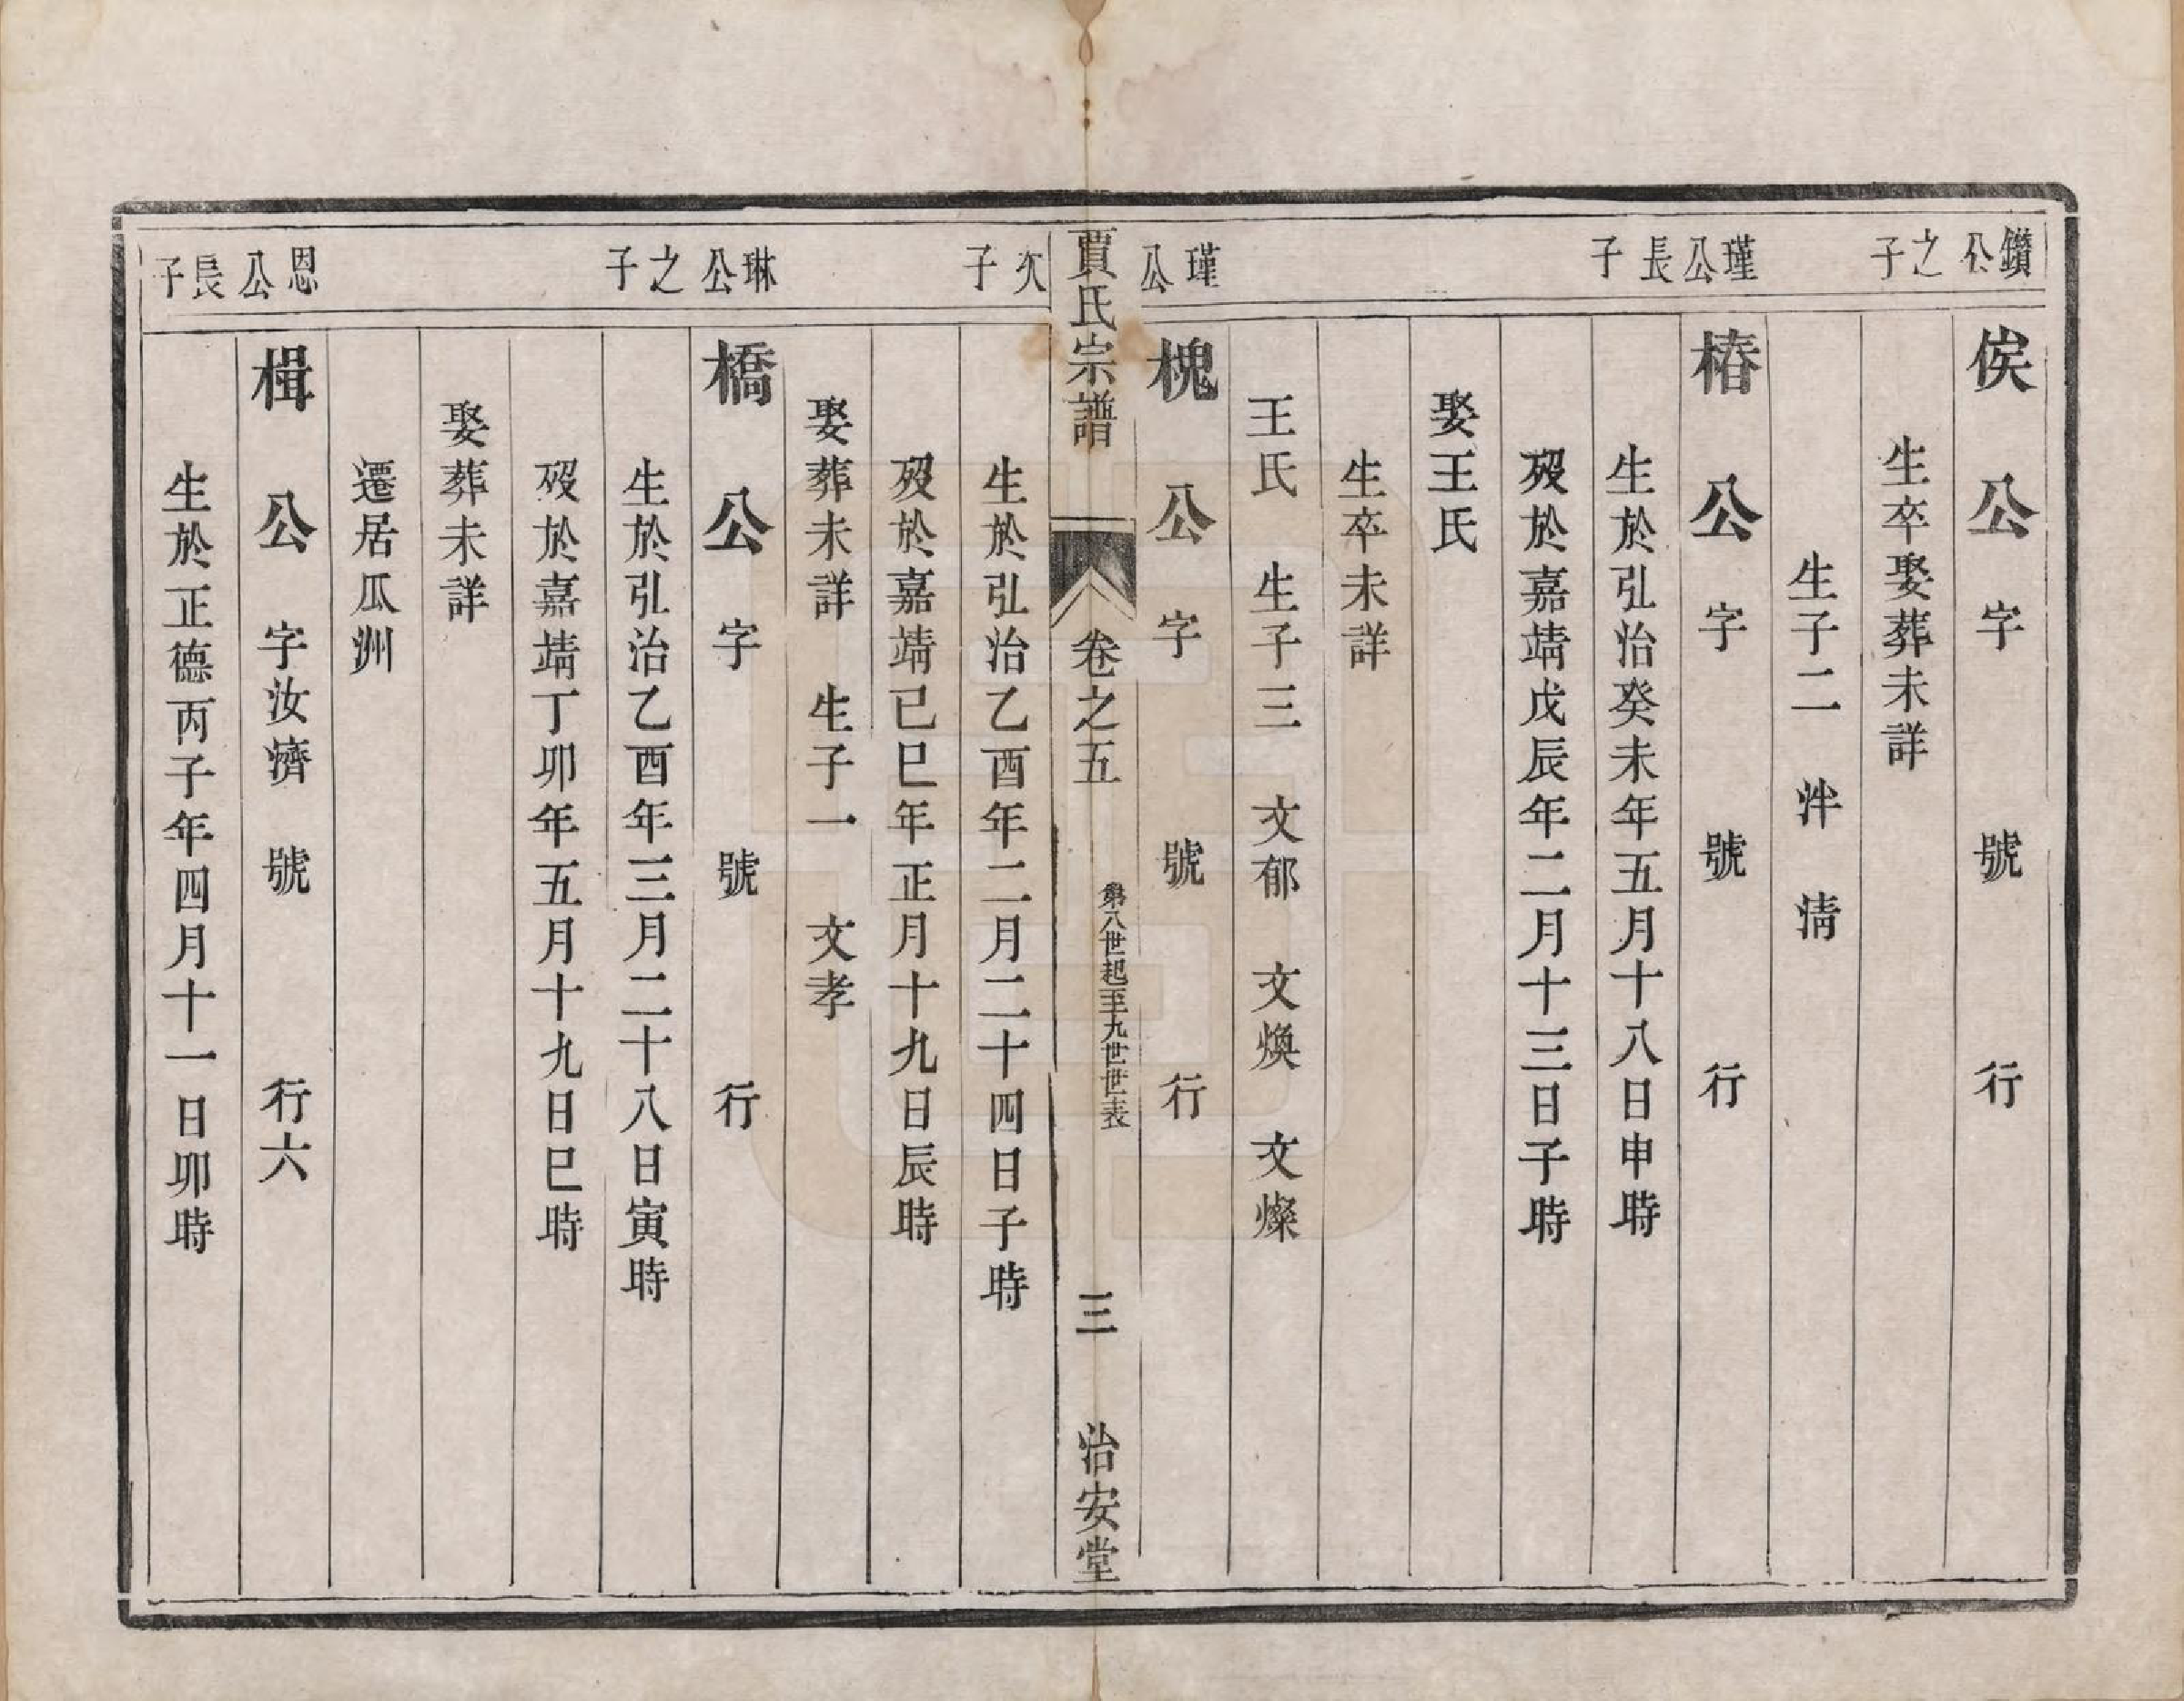 鑽公之子
俟公字 號 行
生卒娶葬未詳
生子二 泮 淸
瑾公長子
椿公字 號 行
生於弘治癸未年五月十八日申時
歿於嘉靖戊辰年二月十三日子時
娶王氏
生卒未詳
王氏 生子三 文郁 文煥 文燦
瑾公次子
槐公字 號 行
賈氏宗譜 卷之五 第八世起至九世世表 三 治安堂
生於弘治乙酉年二月二十四日子時
歿於嘉靖已巳年正月十九日辰時
娶葬未詳 生子一 文孝
琳公之子
橋公字 號 行
生於弘治乙酉年三月二十八日寅時
歿於嘉靖丁卯年五月十九日巳時
娶葬未詳
遷居瓜洲
恩公長子
楫公字汝濟 號 行六
生於正德丙子年四月十一日卯時